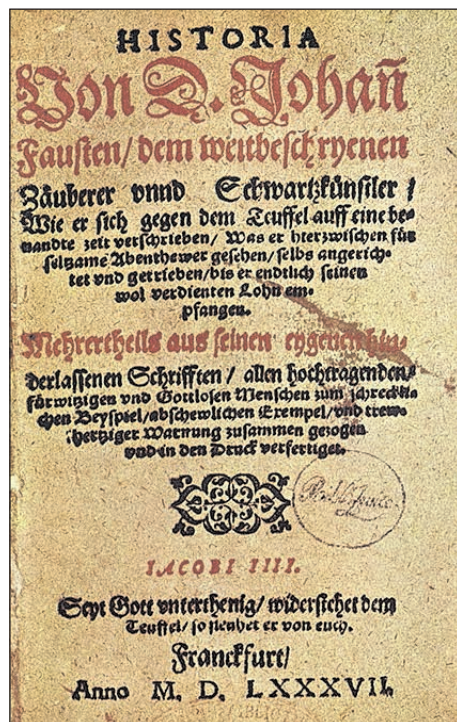 HISTORIA
Von D. Johañ
Fausten/ dem weitbeschreyten
Zäuberer vnnd Schwartzkünstler/
Wie er sich gegen dem Teuffel auff eine be-
nandte zeit verschrieben/ Was er hierzwischen für
seltzame Abenthewer gesehen/ selbs angerich-
tet vnd getrieben/ biß er endtlich seinen
wol verdienten Lohn em-
pfangen.
Mehrertheils auß seinen eygenen hin-
derlassenen Schrifften/ allen hochtragenden/
fürwitzigen vnd Gottlosen Menschen zum schreckli-
chen Beyspiel/ abschewlichen Exempel/ vnd trew-
hertziger Warnung zusammen gezogen
vnd in den Druck verfertiget.
IACOBI IIII.
Seyt Gott vnterthenig/ widerstehet dem
Teuffel/ so fleuhet er von euch.
Franckfurt/
Anno M. D. LXXXVII.